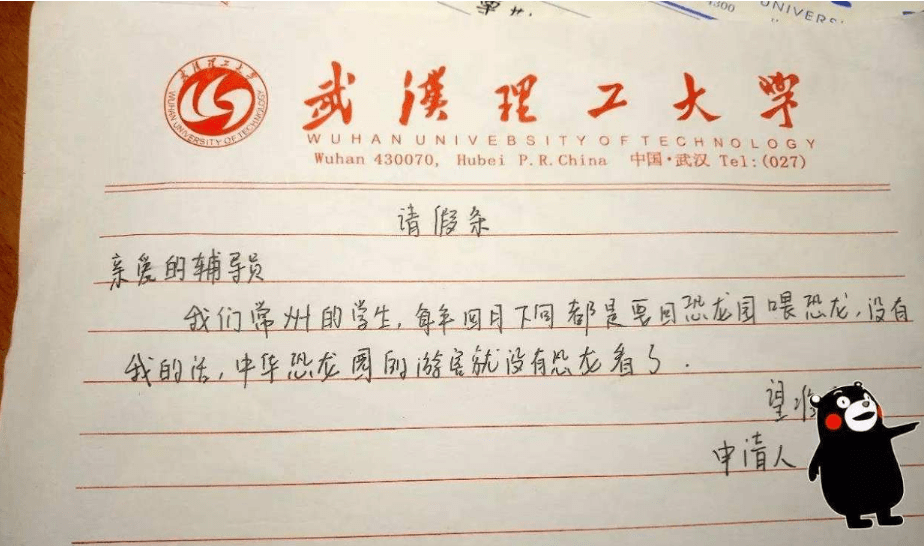 武汉理工大学
WUHAN UNIVERSITY OF TECHNOLOGY
UNIVERS
1300
武漢理工大學
WUHAN UNIVEBSITY OF TECHNOLOGY
Wuhan 430070, Hubei P.R.China 中国·武汉 Tel:(027)
请假条
亲爱的辅导员
我们常州的学生,每年四月下旬都是要回恐龙园喂恐龙,没有
我的话,中华恐龙园的游客就没有恐龙看了.
望
申请人